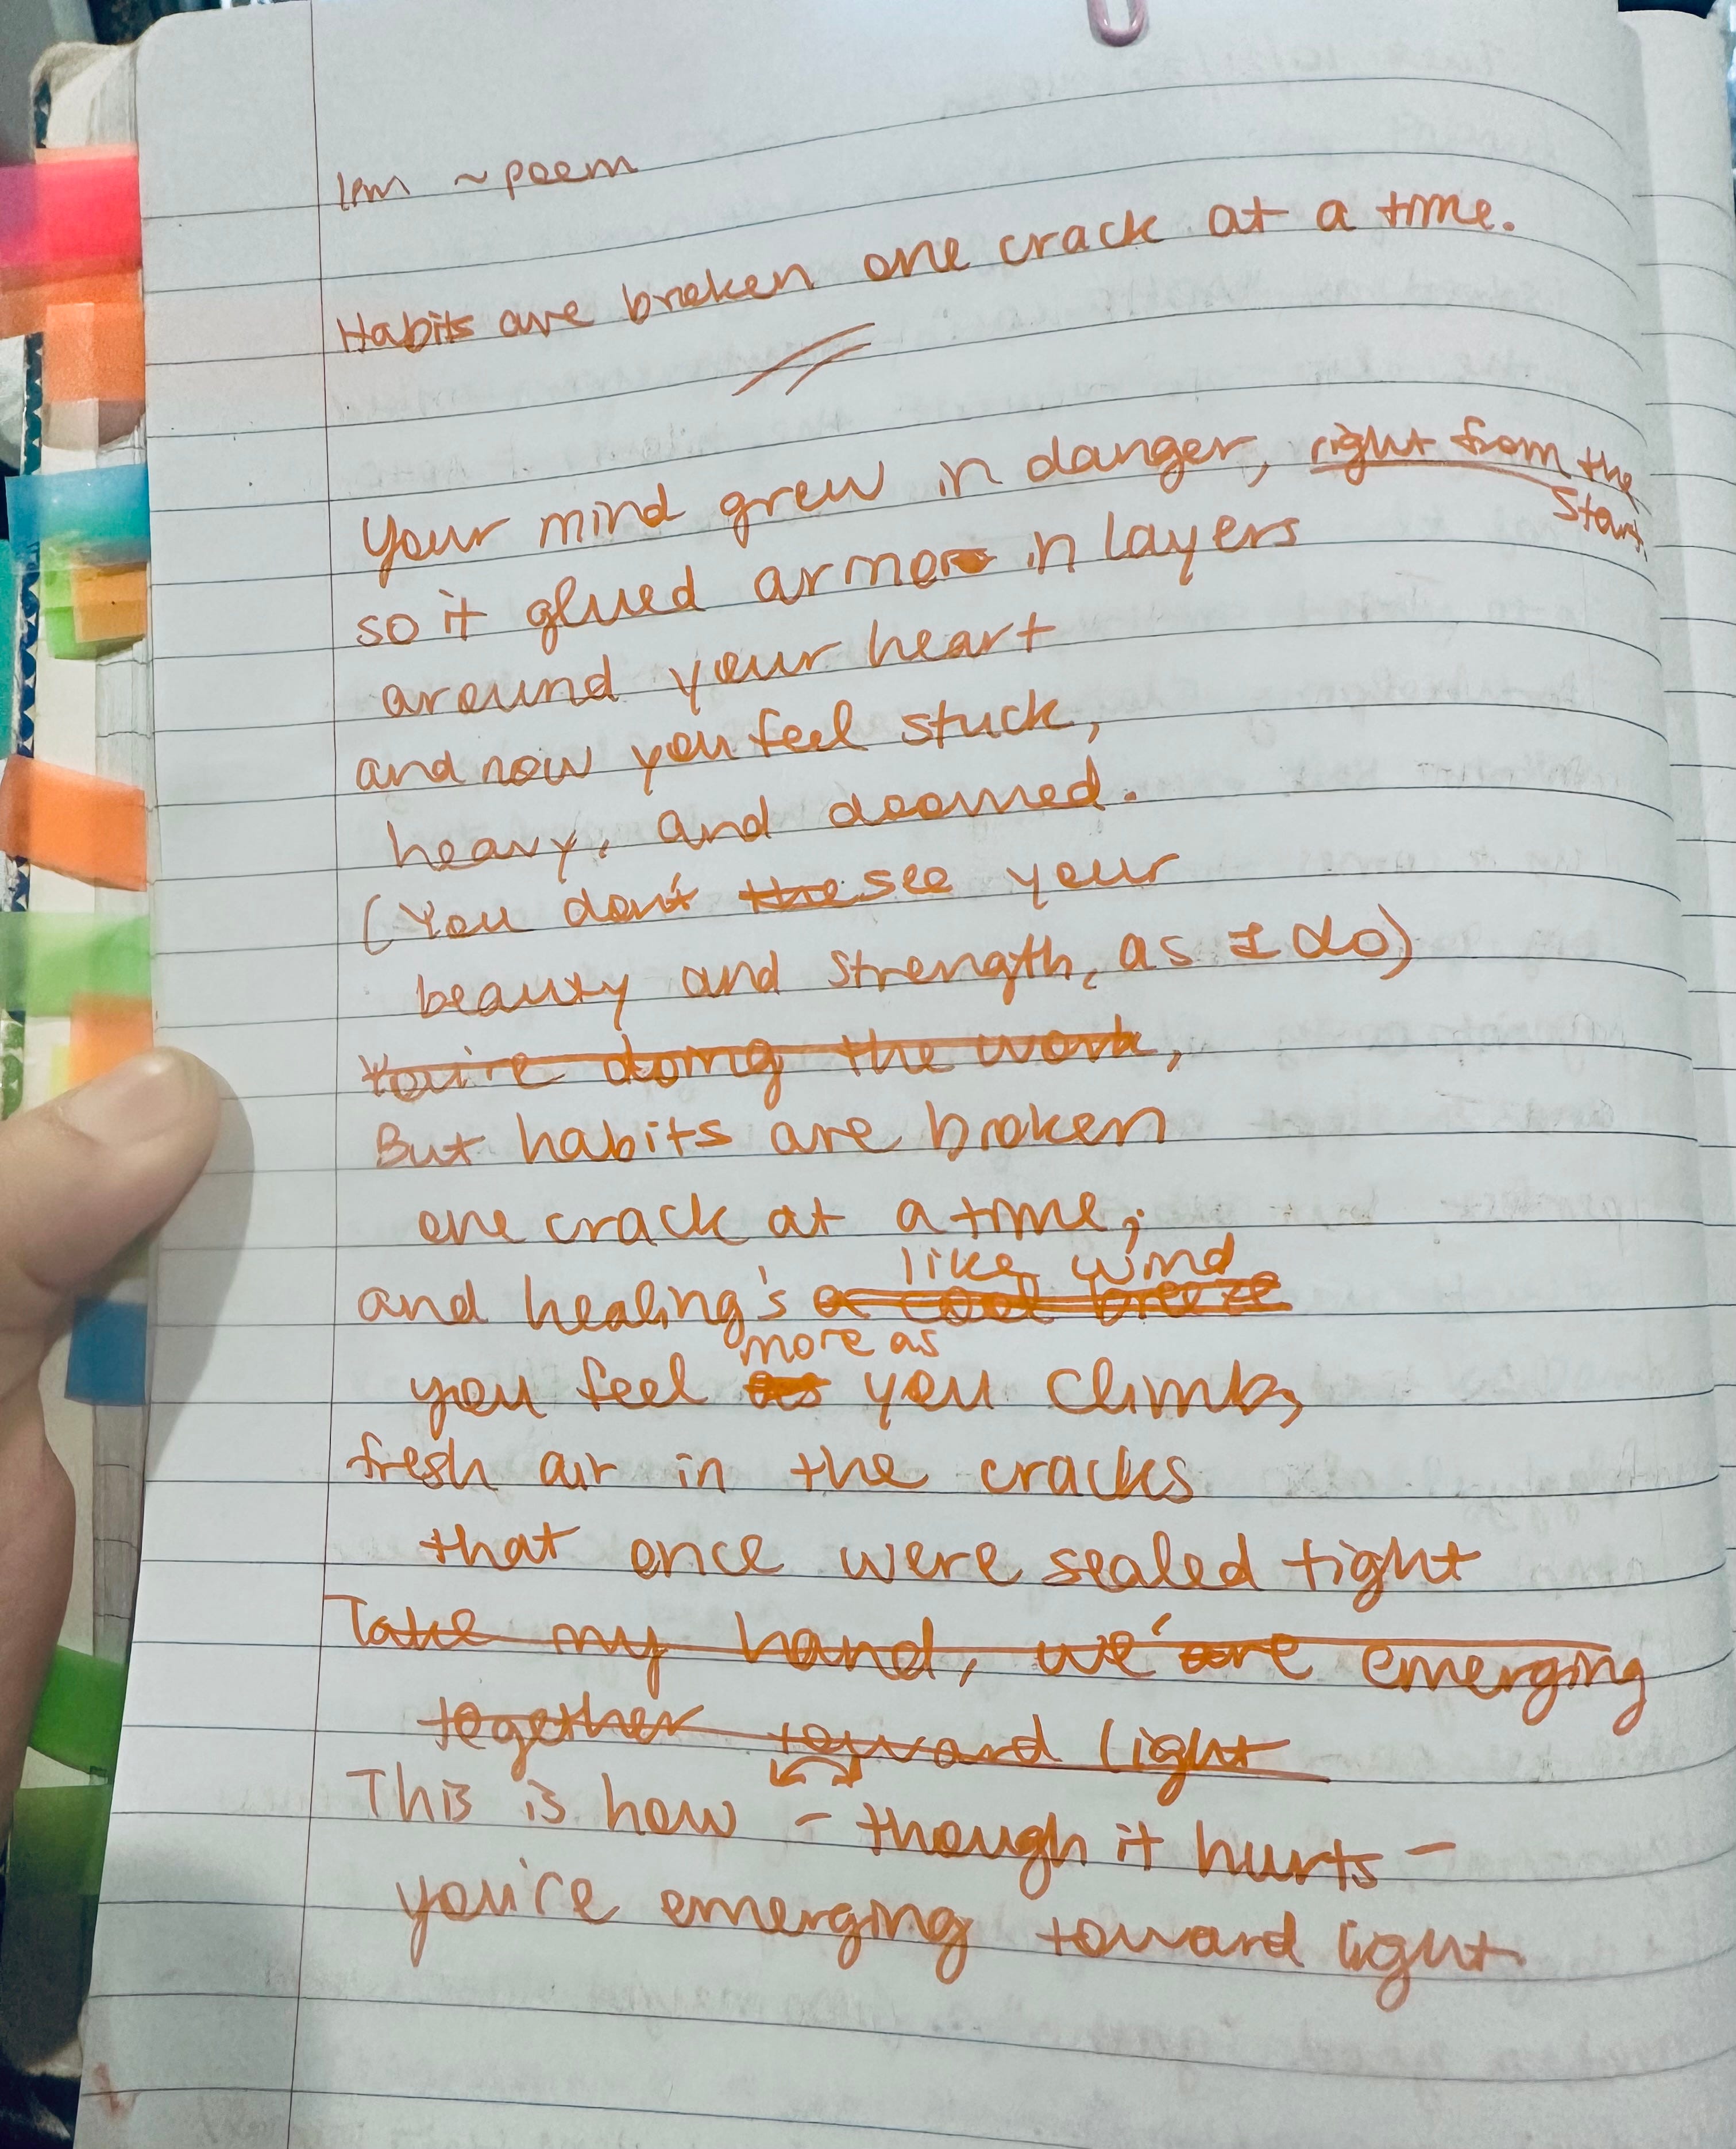 1pm ~ poem
Habits are broken one crack at a time.
Your mind grew in danger, right from the
start.
so it glued armor in layers
around your heart
and now you feel stuck,
heavy, and doomed.
(You don't the see your
beauty and strength, as I do)
You're doing the work,
But habits are broken
one crack at a time;
like wind
and healing's a cool breeze
more as
you feel as you climb,
fresh air in the cracks
that once were sealed tight
Take my hand, we're emerging
together toward light
This is how - though it hurts -
you're emerging toward light